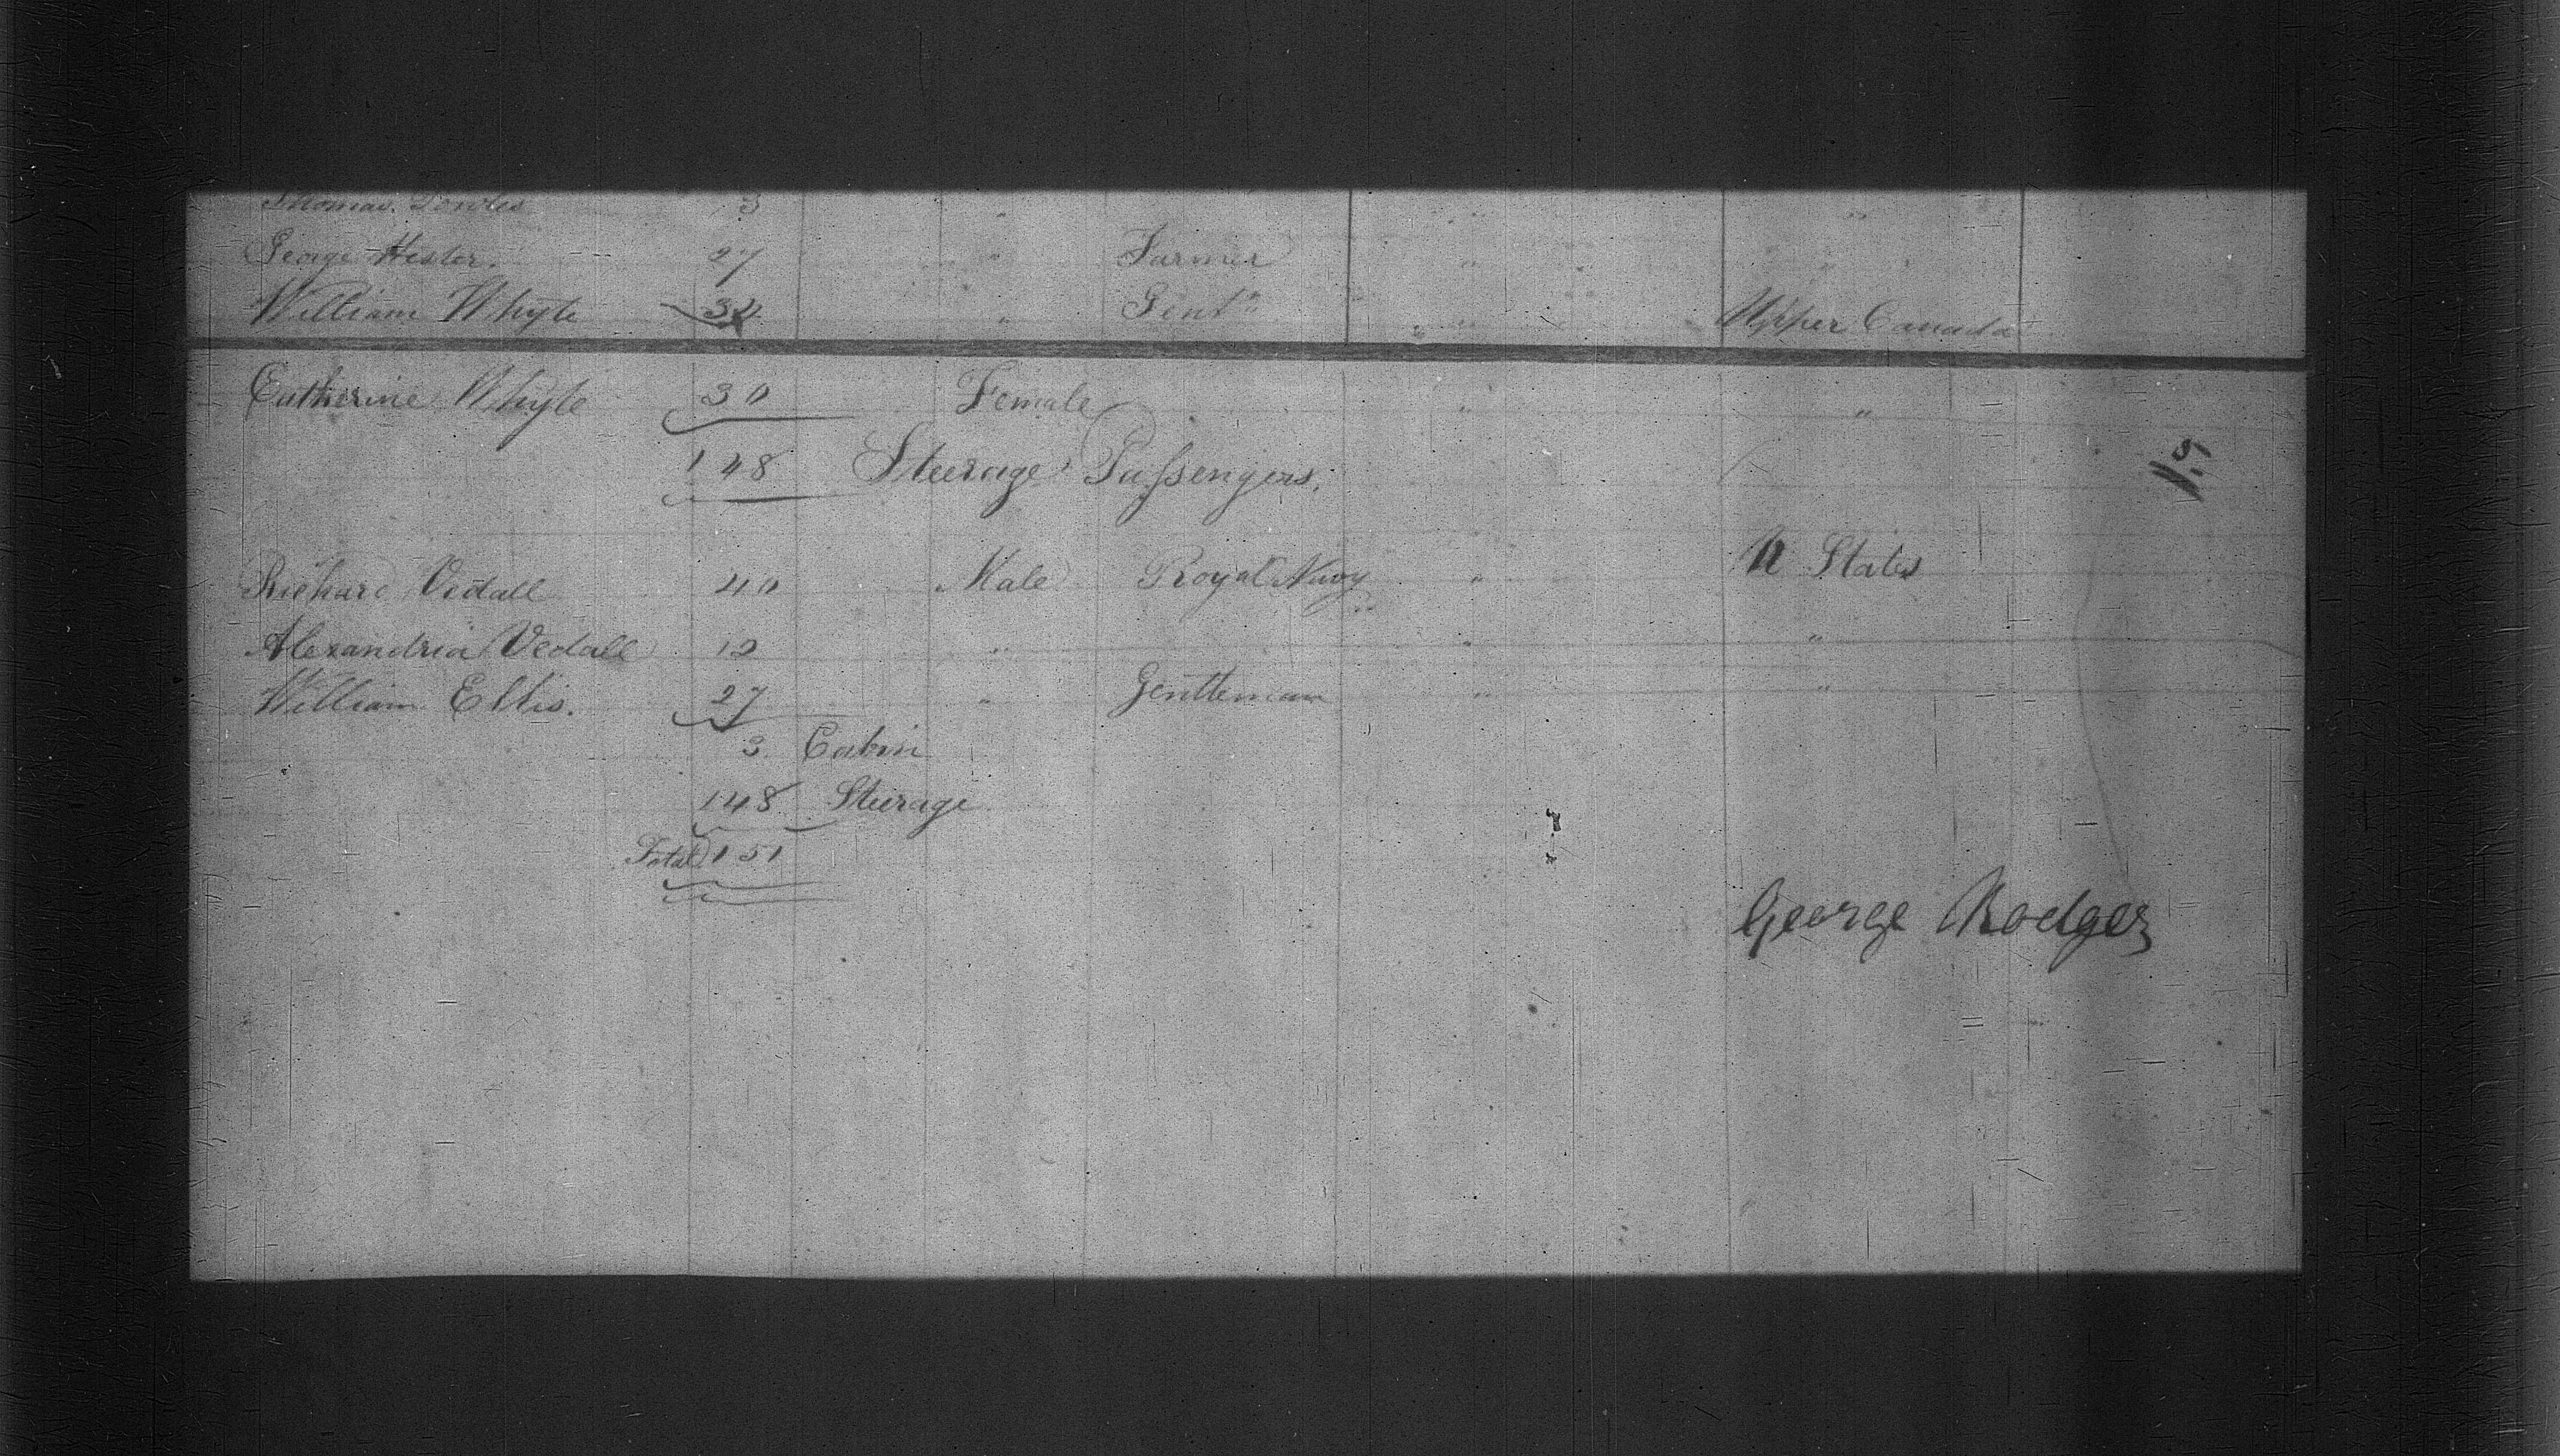 Thomas 3 "
George Hester. 27 " Farmer " "
William Whyte 32 " Gentn " Upper Canada
Catherine Whyte 30 Female " "
148 Steerage Passengers.
Richard Vidall 40 Male Royal Navy " U States
Alexandria Vedall 12 " " "
William Ellis. 27 " Gentleman " "
3 Cabin
148 Steerage
Total 151
George Rodger